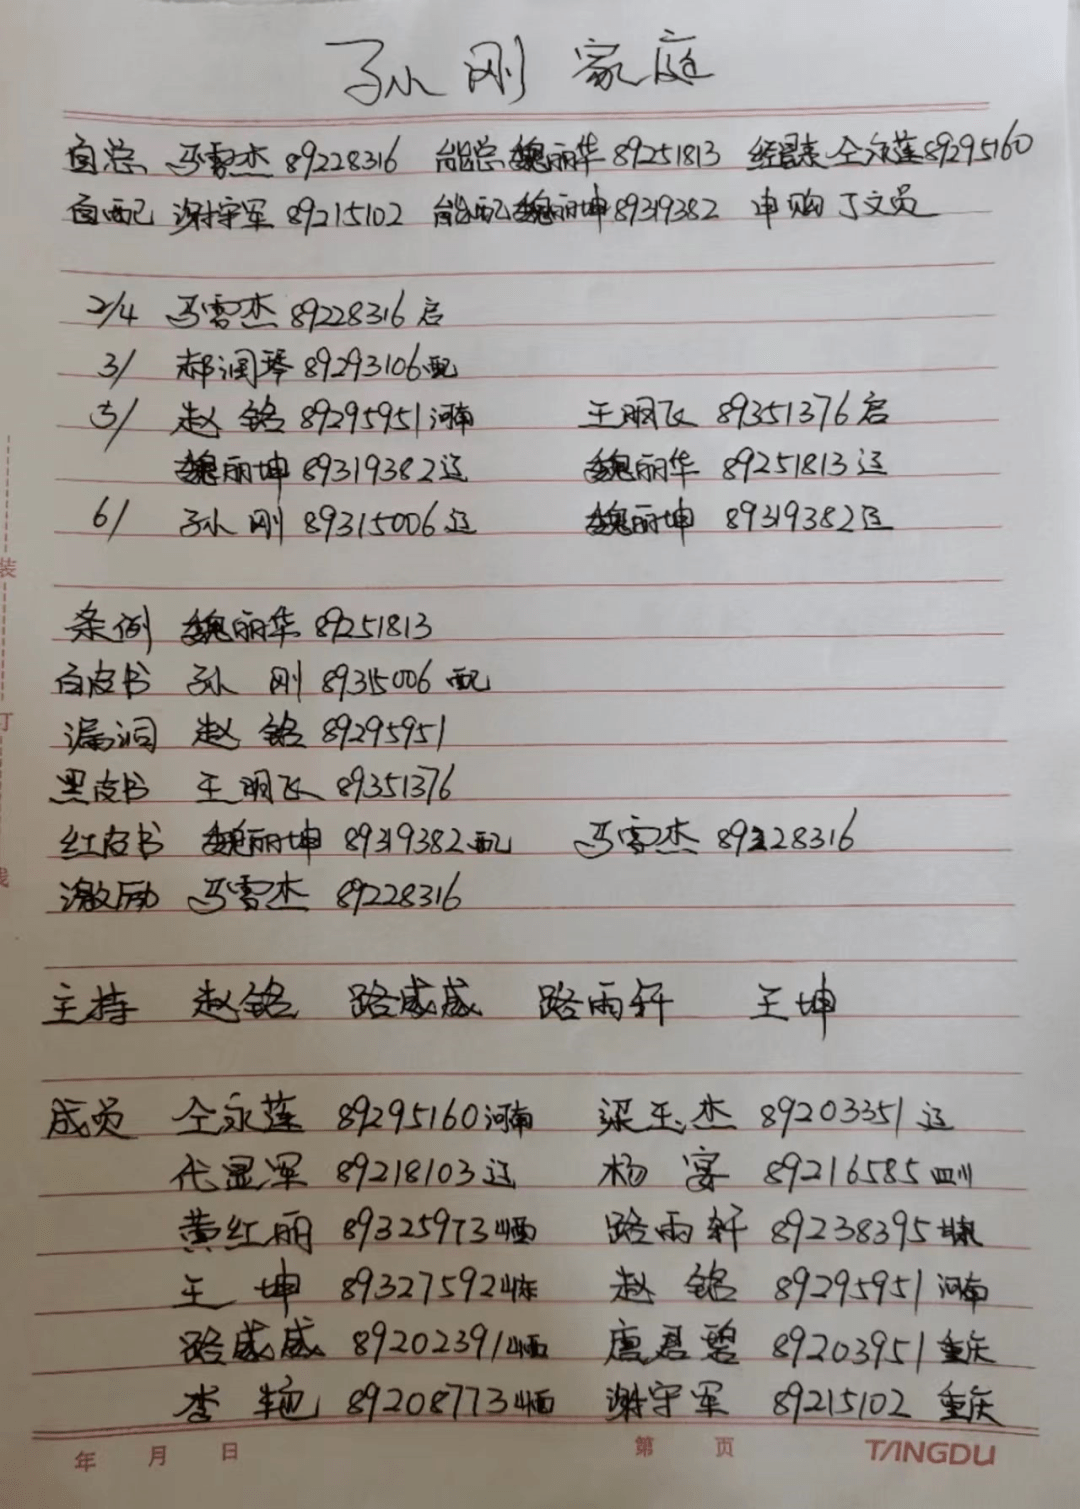 孙刚家庭
自总 马雪杰 89228316 能总 魏丽华 89251813 经晨表 仝永莲 89295160
自配 谢守军 89215102 能配 魏丽坤 89319382 申购 丁文员
2/4 马雪杰 89228316 启
3/ 郝润琴 89293106 配
5/ 赵铭 89295951 河南 王明飞 89351376 启
魏丽坤 89319382 辽 魏丽华 89251813 辽
6/ 孙刚 89315006 辽 魏丽坤 89319382 辽
条例 魏丽华 89251813
白皮书 孙刚 89315006 配
漏洞 赵铭 89295951
黑皮书 王明飞 89351376
红皮书 魏丽坤 89319382 配 马雪杰 89228316
激励 马雪杰 89228316
主持 赵铭 路威威 路雨轩 王坤
成员 仝永莲 89295160 河南 梁玉杰 89203351 辽
代显军 89218103 辽 杨宴 89216585 四川
黄红丽 89325973 山西 路雨轩 89238395
王坤 89327592 山东 赵铭 89295951 河南
路威威 89202391 山西 唐君碧 89203951 重庆
李艳 89208773 山西 谢守军 89215102 重庆
年 月 日 第 页 TANGDU
装
订
线